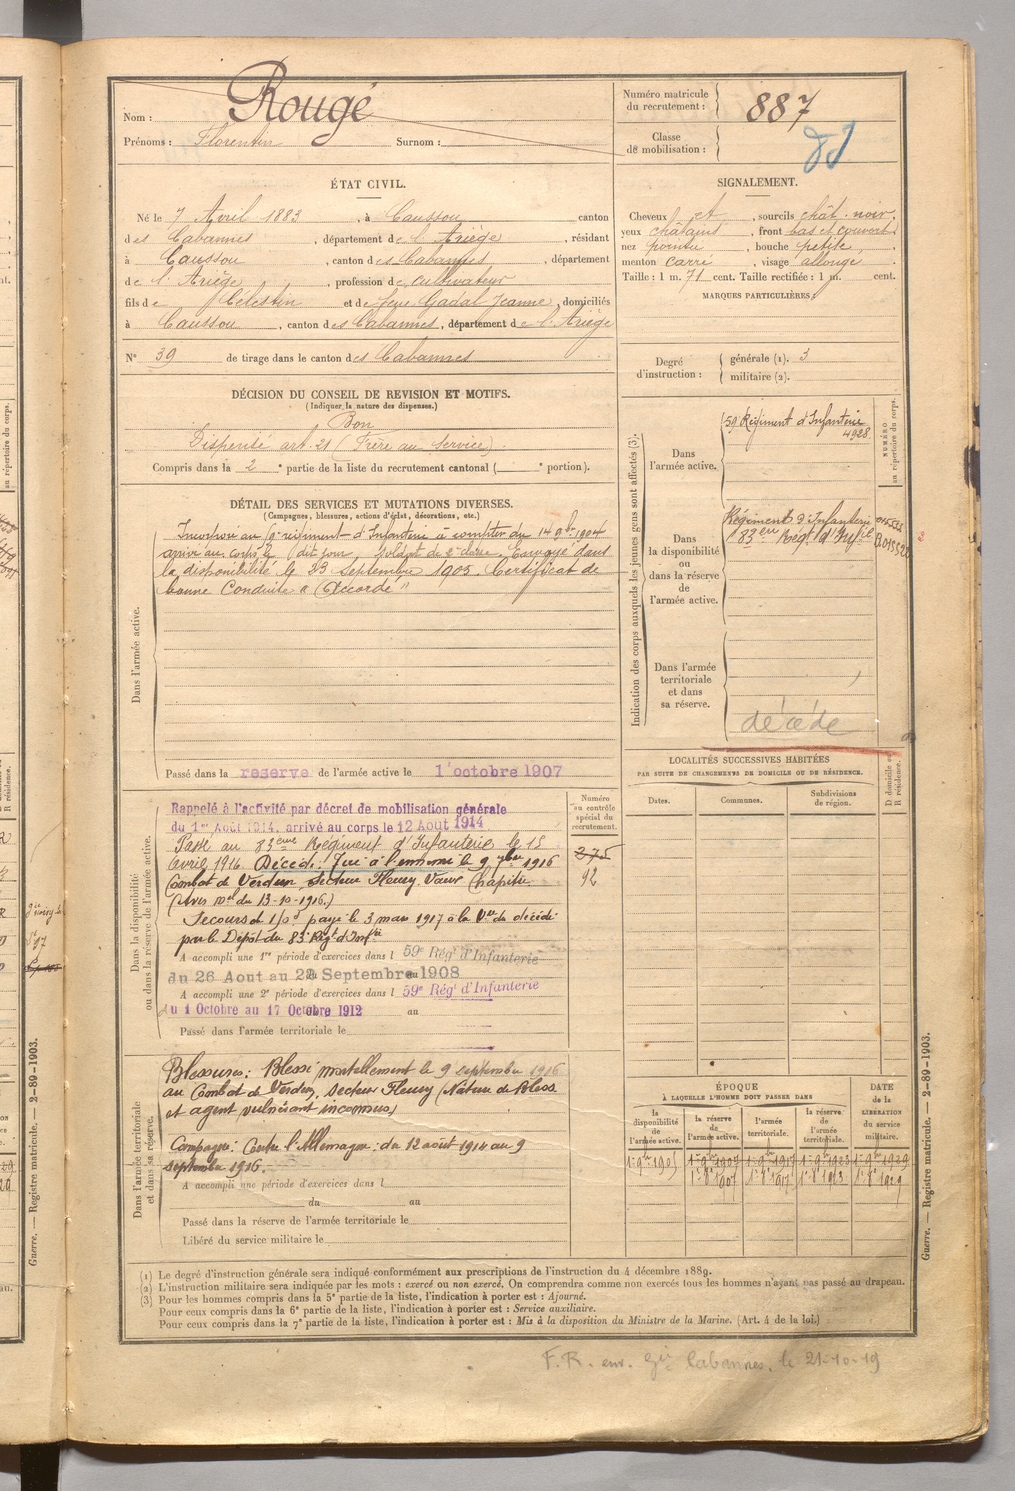 Nom : Rougé
Prénoms : Florentin Surnom :
Numéro matricule du recrutement : 887
Classe de mobilisation :
ÉTAT CIVIL.
Né le 7 Avril 1883, à Caussou canton
des Cabannes, département de l'Ariège, résidant
à Caussou, canton des Cabannes, département
de l'Ariège, profession de cultivateur
fils de Célestin et de feue Gadal Jeanne, domiciliés
à Caussou, canton des Cabannes, département de l'Ariège
N° 39 de tirage dans le canton des Cabannes
SIGNALEMENT.
Cheveux et sourcils chât. noir
yeux châtains, front bas et couvert
nez pointu, bouche petite,
menton carré, visage allongé
Taille : 1 m. 71 cent. Taille rectifiée : 1 m. cent.
MARQUES PARTICULIÈRES :
Degré d'instruction : générale (1). 3
militaire (2).
DÉCISION DU CONSEIL DE REVISION ET MOTIFS.
(Indiquer la nature des dispenses.)
Bon
Dispensé art. 21 (Frère au Service).
Compris dans la 2e partie de la liste du recrutement cantonal ( e portion).
DÉTAIL DES SERVICES ET MUTATIONS DIVERSES.
(Campagnes, blessures, actions d'éclat, décorations, etc.)
Dans l'armée active.
Incorporé au régiment d'Infanterie à compter du 14 9bre 1904
arrivé au corps le dit jour, soldat de 2e classe. Envoyé dans
la disponibilité le 23 Septembre 1905. Certificat de
bonne Conduite "Accordé"
Passé dans la réserve de l'armée active le 1 octobre 1907
Indication des corps auxquels les jeunes gens sont affectés (3).
Dans l'armée active.
59e Régiment d'Infanterie
4928
Dans la disponibilité ou dans la réserve de l'armée active.
Régiment d'Infanterie
83ème Régt d'Infie
Dans l'armée territoriale et dans sa réserve.
décédé
NUMÉRO au répertoire du corps.
LOCALITÉS SUCCESSIVES HABITÉES
PAR SUITE DE CHANGEMENTS DE DOMICILE OU DE RÉSIDENCE.
Dates. Communes. Subdivisions de région. D domicile ou R résidence.
Dans la disponibilité ou dans la réserve de l'armée active.
Numéro au contrôle spécial du recrutement.
275
92
Rappelé à l'activité par décret de mobilisation générale
du 1er Août 1914, arrivé au corps le 12 Août 1914
Passé au 83ème Régiment d'Infanterie le 15
avril 1916 Décédé : Tué à l'ennemi le 9 7bre 1916
Combat de Verdun, secteur Fleury Vaux Chapitre
(Avis mel du 13-10-1916.)
Secours de 150f payé le 3 mars 1917 à la Vve du décédé
par le Dépôt du 83e Régt d'Infie
A accompli une 1re période d'exercices dans l 59e Régt d'Infanterie
du 26 Aout au 22 Septembre 1908
A accompli une 2e période d'exercices dans l 59e Régt d'Infanterie
du 1 Octobre au 17 Octobre 1912 au
Passé dans l'armée territoriale le
Dans l'armée territoriale et dans sa réserve.
Blessures : Blessé mortellement le 9 septembre 1916
au Combat de Verdun, secteur Fleury (Nature de bless.
et agent vulnérant inconnus)
Campagne : Contre l'Allemagne : du 12 août 1914 au 9
septembre 1916.
A accompli une période d'exercices dans l
du au
Passé dans la réserve de l'armée territoriale le
Libéré du service militaire le
ÉPOQUE
À LAQUELLE L'HOMME DOIT PASSER DANS
la disponibilité de l'armée active. la réserve de l'armée active. l'armée territoriale. la réserve de l'armée territoriale. DATE de la LIBÉRATION du service militaire.
1er 9bre 1905 1er 9bre 1907 1er 9bre 1917 1er 9bre 1923 1er 9bre 1929
1er 8bre 1907 1er 8bre 1917 1er 8bre 1923 1er 8bre 1929
(1) Le degré d'instruction générale sera indiqué conformément aux prescriptions de l'instruction du 4 décembre 1889.
(2) L'instruction militaire sera indiquée par les mots : exercé ou non exercé. On comprendra comme non exercés tous les hommes n'ayant pas passé au drapeau.
(3) Pour les hommes compris dans la 5e partie de la liste, l'indication à porter est : Ajourné.
Pour ceux compris dans la 6e partie de la liste, l'indication à porter est : Service auxiliaire.
Pour ceux compris dans la 7e partie de la liste, l'indication à porter est : Mis à la disposition du Ministre de la Marine. (Art. 4 de la loi.)
Guerre. — Registre matricule. — 2-89-1903.
Guerre. — Registre matricule. — 2-89-1903.
F.R. env. Gie Cabannes, le 21-10-19